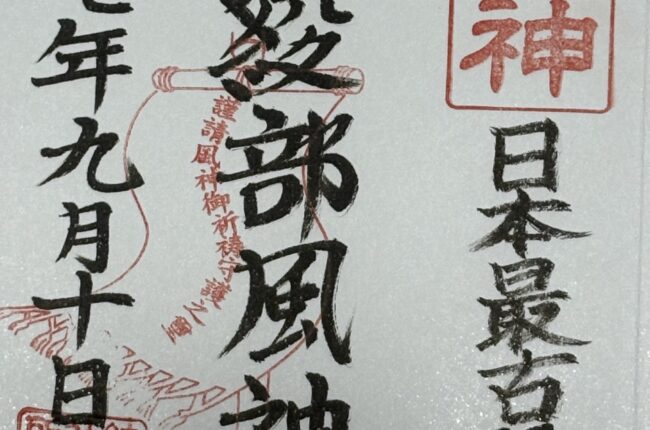 神
日本最古
綾部風神
謹請風神御祈禱守護之
七年九月十日